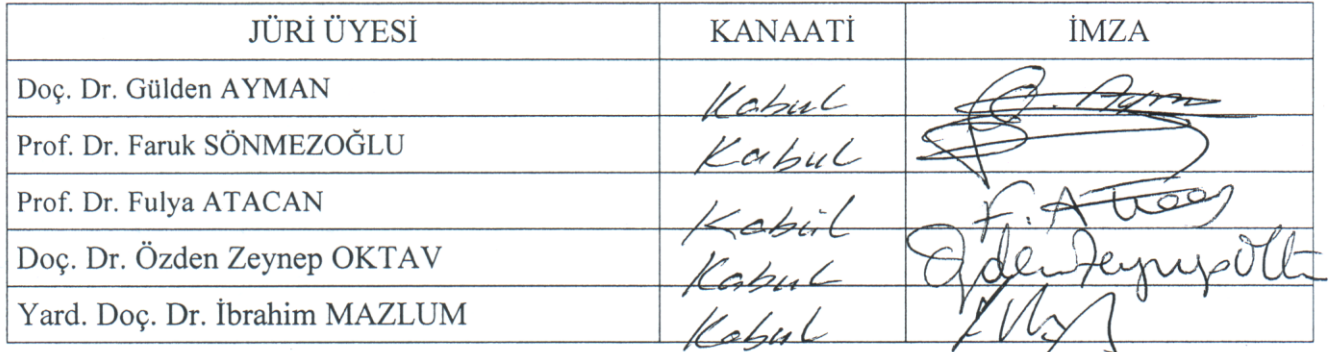 JÜRİ ÜYESİ KANAATİ İMZA
Doç. Dr. Gülden AYMAN Kabul
Prof. Dr. Faruk SÖNMEZOĞLU Kabul
Prof. Dr. Fulya ATACAN Kabul
Doç. Dr. Özden Zeynep OKTAV Kabul Özden Zeynep Oktav
Yard. Doç. Dr. İbrahim MAZLUM Kabul